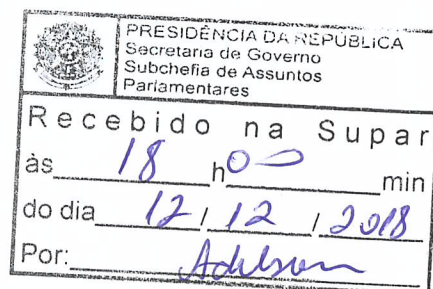 PRESIDÊNCIA DA REPÚBLICA
Secretaria de Governo
Subchefia de Assuntos
Parlamentares
Recebido na Supar
às 18 h 00 min
do dia 12 / 12 / 2018
Por: Adilson